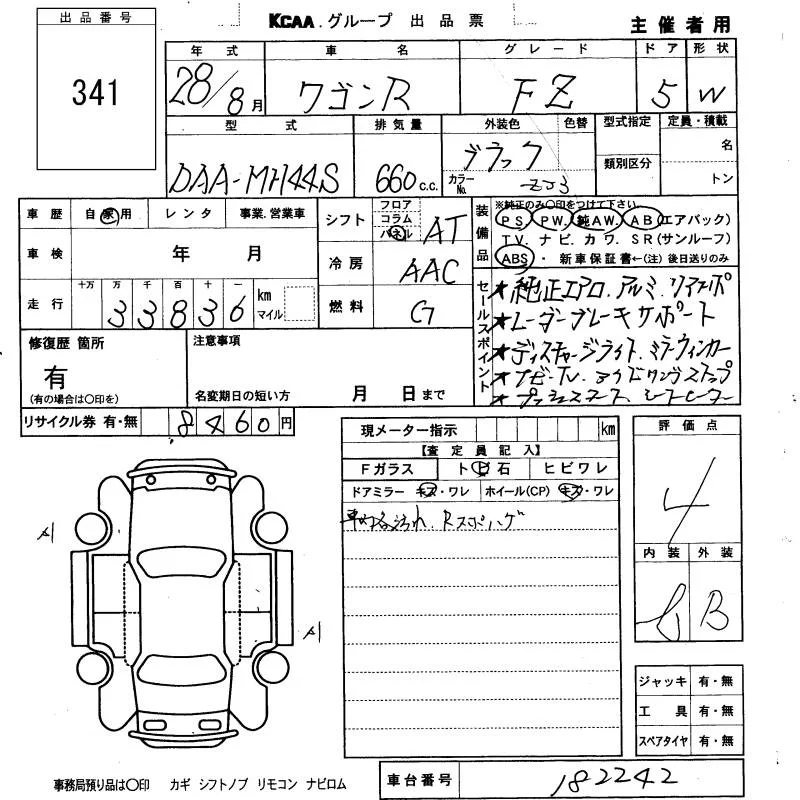 出品番号
341
KCAA.グループ 出品票
主催者用
年式 車名 グレード ドア 形状
28/8月 ワゴンR FZ 5 W
型式 排気量 外装色 色替 型式指定 定員・積載
DAA-MH44S 660c.c. ブラック
カラーNo. ZJ3
類別区分
名
トン
車歴 自家用 レンタ 事業.営業車
車検 年 月
走行 十万 万 千 百 十 一
33836 km
マイル
シフト フロア コラム パネル AT
冷房 AAC
燃料 G
装備品
※純正のみ〇印をつけて下さい。
PS PW. 純AW. AB(エアバック)
TV. ナビ. カワ. SR(サンルーフ)
ABS ・ 新車保証書←(注) 後日送りのみ
セールスポイント
★純正エアロ.アルミ.リアスポ
★レーダーブレーキサポート
★ディスチャージライト.ミラーウィンカー
★ナビ-TV. アイドリングストップ
★プッシュスタート シートヒーター
修復歴 箇所
有
(有の場合は〇印を)
注意事項
名変期日の短い方 月 日まで
リサイクル券 有・無 8460円
現メーター指示 km
【査定員記入】
Fガラス トビ石 ヒビワレ
ドアミラー キズ・ワレ ホイール(CP) キズ・ワレ
車内各汚れ. Rスポハゲ
評価点
4
内装 外装
B
A1
A1
ジャッキ 有・無
工具 有・無
スペアタイヤ 有・無
事務局預り品は〇印 カギ シフトノブ リモコン ナビロム
車台番号 182242